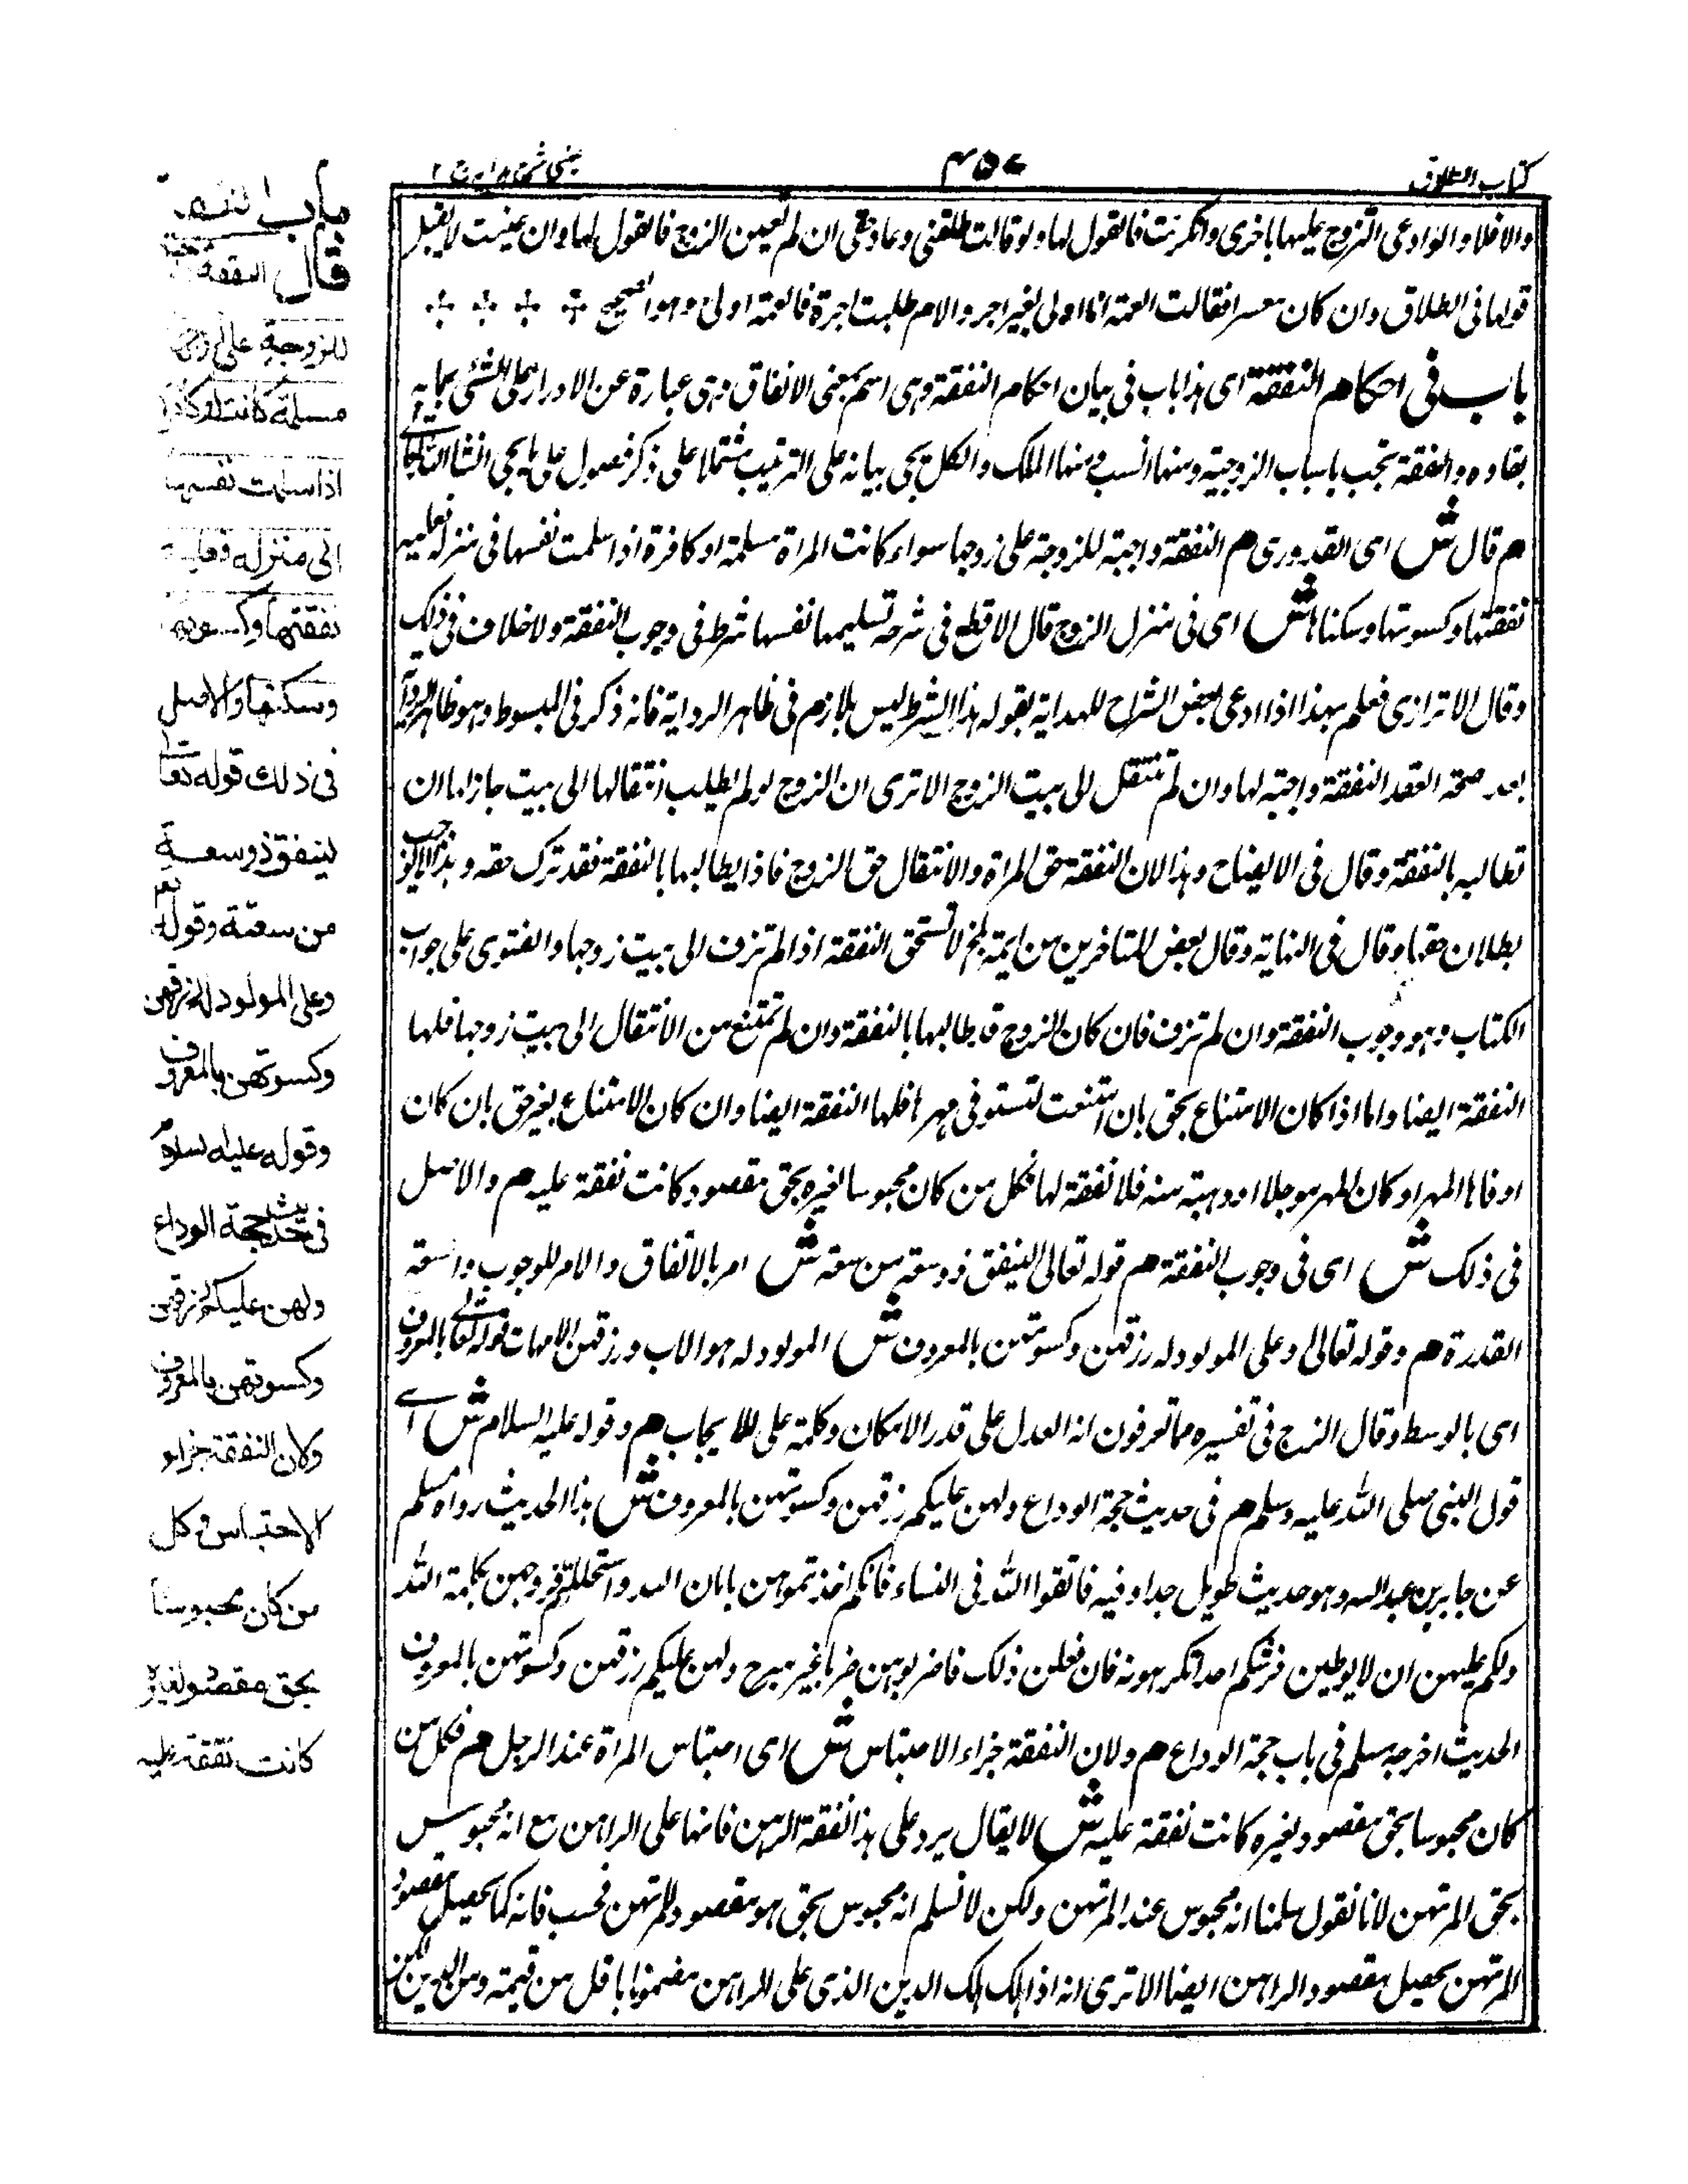 كتاب الطلاق
٤٥٧
عيني شرح هداية ج ٢
والافلا ولو ادعى التزوج عليها باخرى وانكرت فالقول لها ولو قالت طلقني وعاد حقي ان لم تعين الزوج فالقول لها وان عينت لا يقبل
قولها في الطلاق وان كان معسرا فقالت العمة انا اولى بغير اجر والام طلبت اجرة فالعمة اولى وهو الصحيح
باب في احكام النفقة اى هذا باب في بيان احكام النفقة وهى اسم بمعنى الانفاق وهى عبارة عن الادرار على الشئ بما به
بقاوه والنفقة تجب باسباب الزوجية ومنها النسب ومنها الملك والكل يجي بيانه على الترتيب مشتملا على ذكر فصول على ما يجي انشا الله تعالى
م قال ش اى القدورى م النفقة واجبة للزوجة على زوجها سواء كانت المراة مسلمة او كافرة اذا سلمت نفسها في منزله فعليه
نفقتها وكسوتها وسكناها ش اى في منزل الزوج قال الاقطع في شرحه تسليمها نفسها شرط في وجوب النفقة ولا خلاف في ذلك
وقال الاترازى فعلم بهذا اذا ادعى بعض الشراح للهداية بقوله هذا الشرط ليس بلازم في ظاهر الرواية فانه ذكر في المبسوط وهو ظاهر الرواية
بعد صحة العقد النفقة واجبة لها وان لم تنتقل الى بيت الزوج الا ترى ان الزوج لو لم يطلب انتقالها الى بيت جاز لها ان
تطالبه بالنفقة وقال في الايضاح وهذا لان النفقة حق المراة والانتقال حق الزوج فاذا يطالبها بالنفقة فقد ترك حقه وهذا لا يوجب
بطلان حقها وقال في النهاية وقال بعض المتاخرين من ايمة بلخ لا تستحق النفقة اذا لم تزف الى بيت زوجها والفتوى على جواب
الكتاب وهو وجوب النفقة وان لم تزف فان كان الزوج قد طالبها بالنفقة وان لم تمتنع من الانتقال الى بيت زوجها فلها
النفقة ايضا واما اذا كان الامتناع بحق بان امتنعت لتستوفى مهرها فلها النفقة ايضا وان كان الامتناع بغير حق بان كان
اوفاها المهر او كان المهر موجلا او وهبته منه فلا نفقة لها فكل من كان محبوسا لغيره بحق مقصود كانت نفقة عليه م والاصل
في ذلك ش اى في وجوب النفقة م قوله تعالى لينفق ذو سعة من سعته ش امر بالانفاق والامر للوجوب والسعة
القدرة م وقوله تعالى وعلى المولود له رزقهن وكسوتهن بالمعروف ش المولود له هو الاب ورزقهن الامهات قوله تعالى بالمعروف
اى بالوسط وقال الزج في تفسيره ما تعرفون انه العدل على قدر الامكان وكلمة على للايجاب م وقوله عليه السلام ش اى
قول النبي صلى الله عليه وسلم م في حديث حجة الوداع ولهن عليكم رزقهن وكسوتهن بالمعروف ش هذا الحديث رواه مسلم
عن جابر بن عبد الله وهو حديث طويل جدا وفيه فاتقوا الله في النساء فانكم اخذتموهن بامان الله واستحللتم فروجهن بكلمة الله
ولكم عليهن ان لا يوطين فرشكم احدا تكرهونه فان فعلن ذلك فاضربوهن ضربا غير مبرح ولهن عليكم رزقهن وكسوتهن بالمعروف
الحديث اخرجه مسلم في باب حجة الوداع م ولان النفقة جزاء الاحتباس ش اى احتباس المراة عند الرجل م فكل من
كان محبوسا بحق مقصود لغيره كانت نفقة عليه ش لا يقال يرد على هذا نفقة الرهن فانها على الراهن مع انه محبوس
بحق المرتهن لانا نقول سلمنا انه محبوس عند المرتهن ولكن لا نسلم انه محبوس بحق هو مقصود للمرتهن فحسب فانه كما يحصل مقصود
المرتهن يحصل مقصود الراهن ايضا الا ترى انه اذا هلك هلك الدين الذى على الراهن مضمونا باقل من قيمته ومن الدين
باب النفقة
قال النفقة
للزوجة على زوجها
مسلمة كانت او كافرة
اذا سلمت نفسها
الى منزله فعليه
نفقتها وكسوتها
وسكنها والاصل
في ذلك قوله تعالى
لينفق ذو سعة
من سعته وقوله تعم
وعلى المولود له رزقهن
وكسوتهن بالمعروف
وقوله عليه السلام
في حديث حجة الوداع
ولهن عليكم رزقهن
وكسوتهن بالمعروف
ولان النفقة جزاء
الاحتباس فكل
من كان محبوسا
بحق مقصود لغيره
كانت نفقته عليه